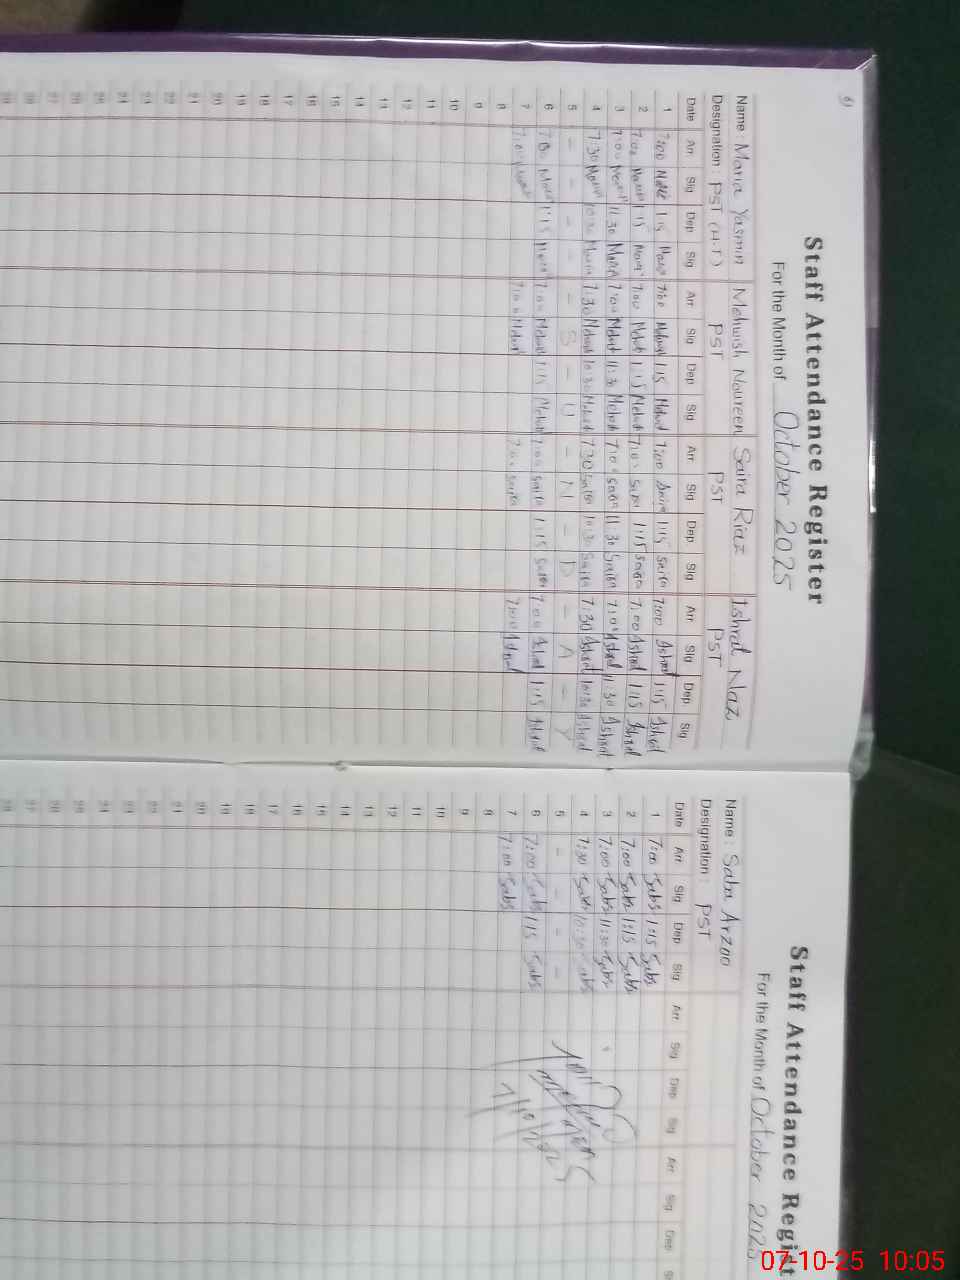 61
Staff Attendance Register
For the Month of October 2025
Name : Maria Yasmin Mehwish Noureen Saira Riaz Ishrat Naz
Designation : PST (H.T) PST PST PST
Date Arr Sig Dep Sig Arr Sig Dep Sig Arr Sig Dep Sig Arr Sig Dep Sig
1 7:00 Maria 1:15 Maria 7:00 Mehwish 1:15 Mehwish 7:00 Saira 1:15 Saira 7:00 Ishrat 1:15 Ishrat
2 7:00 Maria 1:15 Maria 7:00 Mehwish 1:15 Mehwish 7:00 Saira 1:15 Saira 7:00 Ishrat 1:15 Ishrat
3 7:00 Maria 11:30 Maria 7:00 Mehwish 11:30 Mehwish 7:00 Saira 11:30 Saira 7:00 Ishrat 11:30 Ishrat
4 7:30 Maria 10:30 Maria 7:30 Mehwish 10:30 Mehwish 7:30 Saira 10:30 Saira 7:30 Ishrat 10:30 Ishrat
5 - - - - - S - U - N - D - A - Y
6 7:00 Maria 1:15 Maria 7:00 Mehwish 1:15 Mehwish 7:00 Saira 1:15 Saira 7:00 Ishrat 1:15 Ishrat
7 7:00 Maria 7:00 Mehwish 7:00 Saira 7:00 Ishrat
8
9
10
11
12
13
14
15
16
17
18
19
20
21
22
23
24
25
26
27
28
Staff Attendance Regist
For the Month of October 2025
Name : Saba Arzoo
Designation : PST
Date Arr Sig Dep Sig Arr Sig Dep Sig Arr Sig Dep
1 7:00 Saba 1:15 Saba
2 7:00 Saba 1:15 Saba
3 7:00 Saba 11:30 Saba
4 7:30 Saba 10:30 Saba
5 - - - -
6 7:00 Saba 1:15 Saba
7 7:00 Saba
8
9
10
11
12
13
14
15
16
17
18
19
20
21
22
23
24
25
26
27
28
07-10-25 10:05